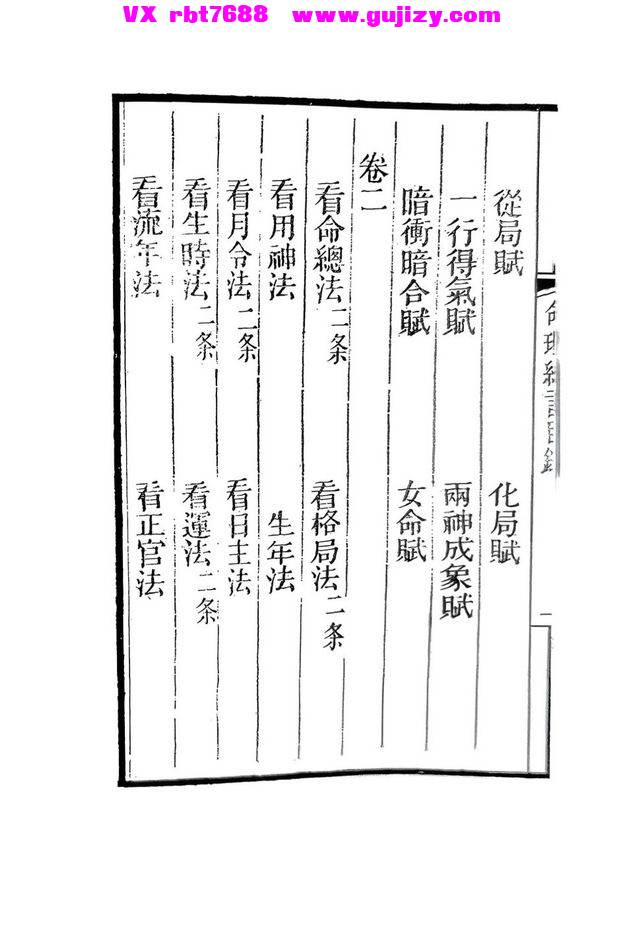 VX rbt7688 www.gujizy.com
從局賦 化局賦
一行得氣賦 兩神成象賦
暗衝暗合賦 女命賦
卷二
看命總法二条 看格局法二条
看用神法 生年法
看月令法二条 看日主法
看生時法二条 看運法二条
看流年法 看正官法